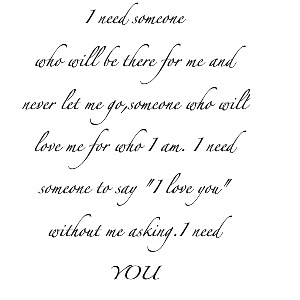 I need someone
who will be there for me and
never let me go,someone who will
love me for who I am. I need
someone to say "I love you"
without me asking.I need
YOU